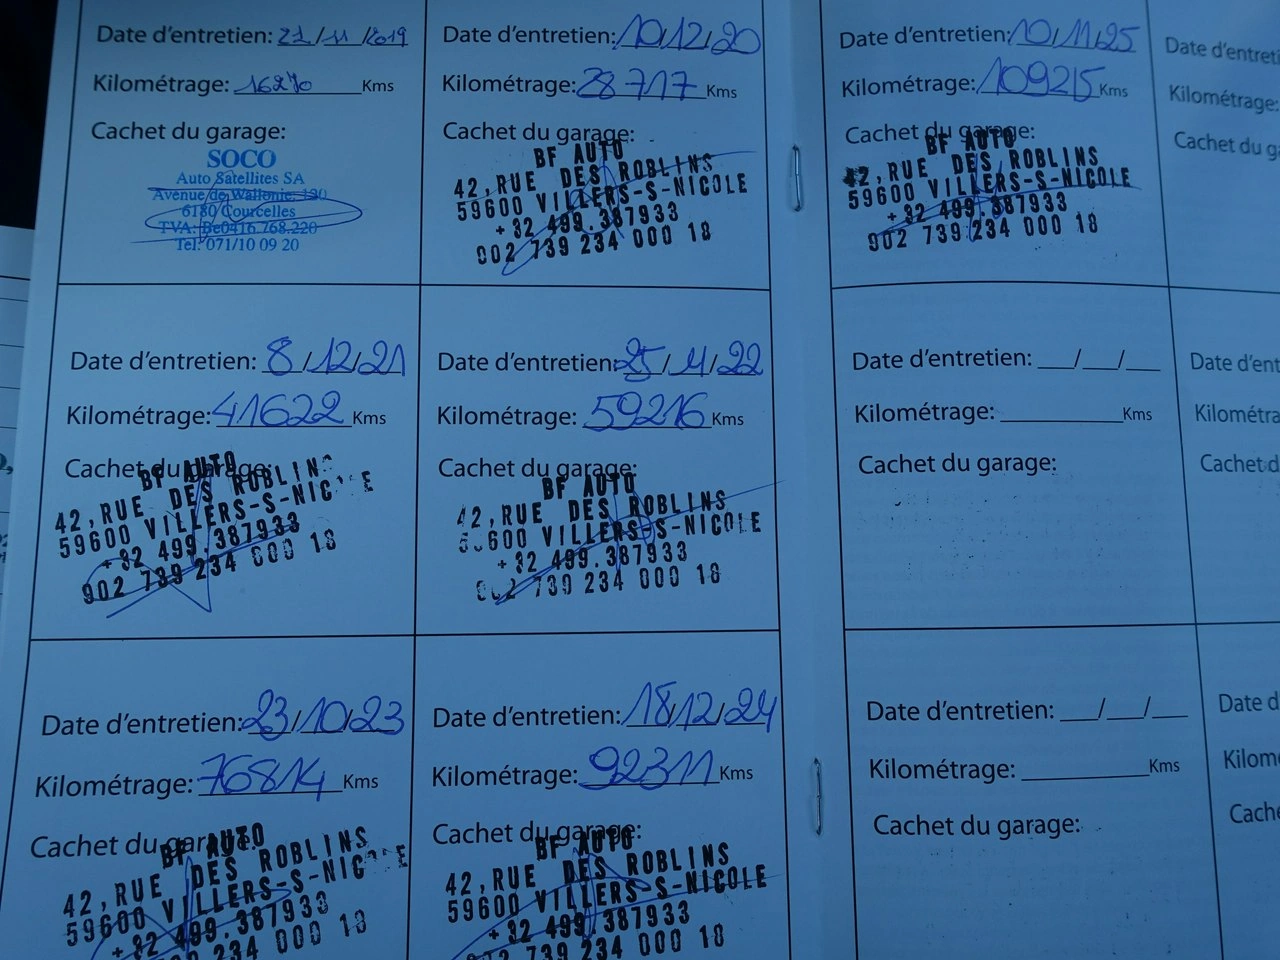 Date d'entretien: 21/11/2019
Kilométrage: 16270 Kms
Cachet du garage:
SOCO
Auto Satellites SA
Avenue de Wallonie, 120
6180 Courcelles
TVA: Be0416.768.220
Tel: 071/10 09 20
Date d'entretien: 10/12/20
Kilométrage: 28717 Kms
Cachet du garage:
BF AUTO
42, RUE DES ROBLINS
59600 VILLERS-S-NICOLE
+32 499.387933
902 739 234 000 18
Date d'entretien: 10/11/25
Kilométrage: 109215 Kms
Cachet du garage:
BF AUTO
42, RUE DES ROBLINS
59600 VILLERS-S-NICOLE
+32 499.387933
902 739 234 000 18
Date d'entreti
Kilométrage:
Cachet du ga
Date d'entretien: 8/12/21
Kilométrage: 41622 Kms
Cachet du garage:
BF AUTO
42, RUE DES ROBLINS
59600 VILLERS-S-NICOLE
+32 499.387933
902 739 234 000 18
Date d'entretien: 25/4/22
Kilométrage: 59216 Kms
Cachet du garage:
BF AUTO
42, RUE DES ROBLINS
59600 VILLERS-S-NICOLE
+32 499.387933
902 739 234 000 18
Date d'entretien: __/__/__
Kilométrage: ________ Kms
Cachet du garage:
Date d'ent
Kilométra
Cachet d
Date d'entretien: 23/10/23
Kilométrage: 76814 Kms
Cachet du garage:
BF AUTO
42, RUE DES ROBLINS
59600 VILLERS-S-NICOLE
+32 499.387933
234 000 18
Date d'entretien: 18/12/24
Kilométrage: 92311 Kms
Cachet du garage:
BF AUTO
42, RUE DES ROBLINS
59600 VILLERS-S-NICOLE
+32 499.387933
902 739 234 000 18
Date d'entretien: __/__/__
Kilométrage: ________ Kms
Cachet du garage:
Date d
Kilom
Cache